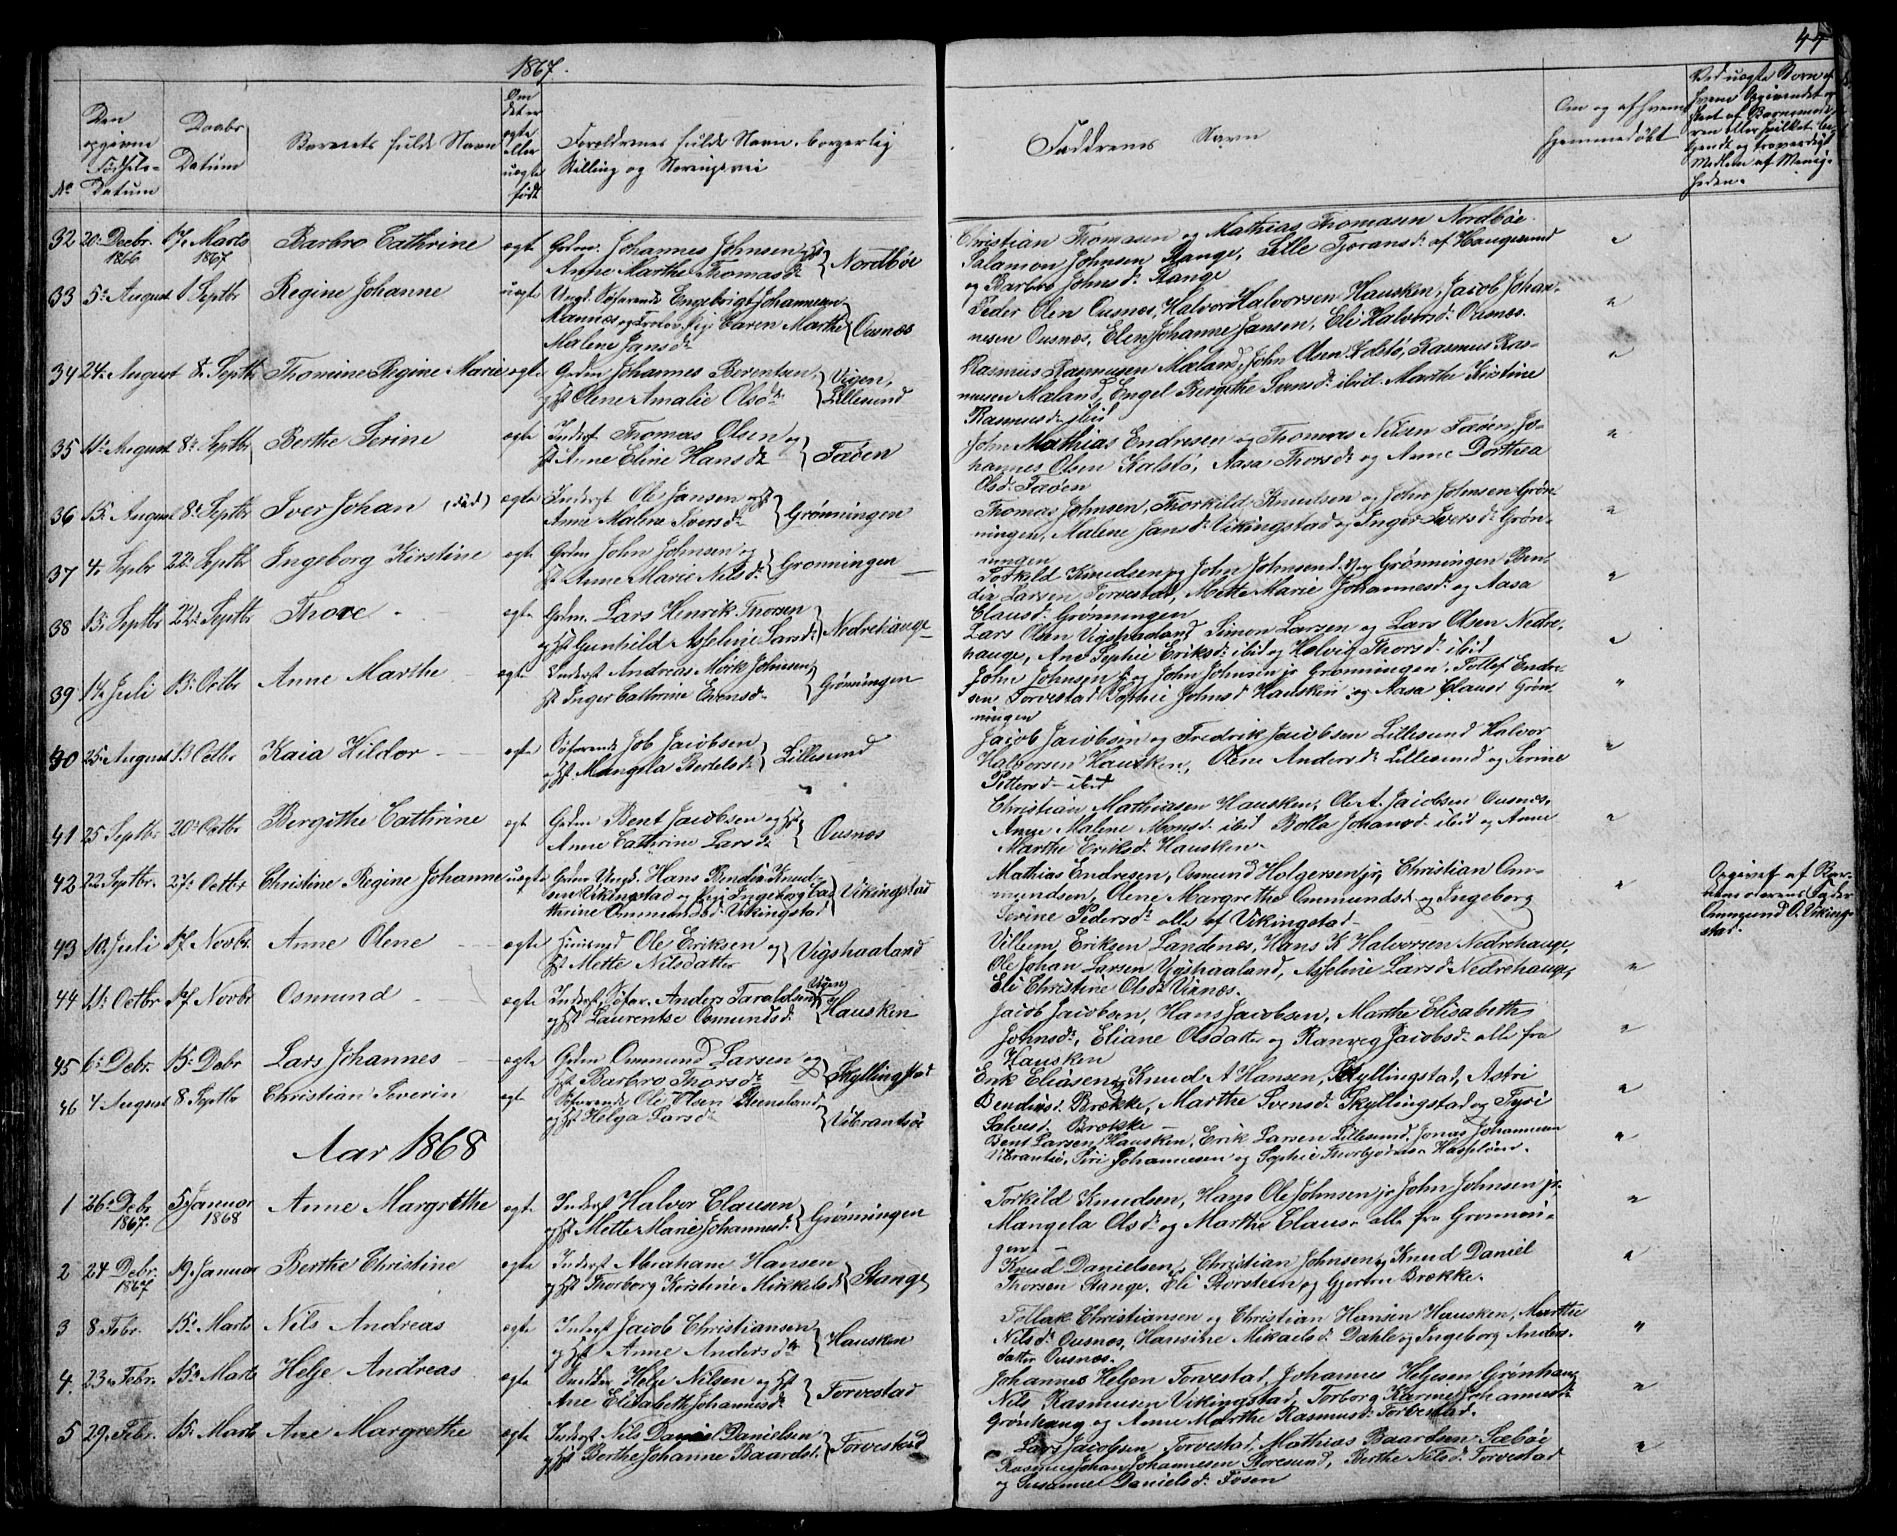 44
1867.
No
Den opgivne Fødsels-Datum
Daabs Datum
Barnets fulde Navn
Om det er ægte eller uægte født
Forældrenes fulde Navn, borgerlig Stilling og Næringsvei
Faddrenes Navn
Om og af hvem hjemmedøbt
32 20 Decbr. 1866 17 Marts 1867 Barbro Cathrine ægte Gaardm. Johannes Johnsen og Anne Marthe Thomasdr Nordbøe
Christian Thomasen og Mathias Thomasen Nordbøe
Salamon Johnsen Stange, Lille Tjøransdr af Haugesund
og Barbro Johnsdr Stange
33 5 August 1 Septbr Regine Johanne uægte Ungk. Søfarende Engebrigt Johannesen
Caren Marthe Malene Jansdr Ousnæs
Peder Olsen Ousnæs, Halvor Halvorsen Hausken, Jacob Johan-
nesen Ousnæs, Elen Johanne Jansen, Eli Halvorsdr Ousnæs
34 24 August 8 Septbr Thomine Regine Marie ægte Gaardm Johannes Berentsen
og Hst Olene Amalie Olsdr Vigen, Lillesund
Rasmus Rasmusen Mæland, John Olsen Kolstø, Rasmus Ras-
musen Mæland, Engel Bergithe Svensdr ibid. Marthe Kirstine
Rasmusdr ibid
35 11 August 8 Septbr Berthe Serine ægte Inderst Thomas Olsen og
Hst Anne Eline Hansdr Fæøen
John Mathias Endresen og Thomas Nilsen Fæøen, Jo-
hannes Olsen Kolstø, Aasa Thorsdr og Anne Dorthea
Olsdr Fæøen
36 15 August 8 Septbr Iver Johan (død) ægte Inderst Ole Jansen og Hst
Anne Malene Iversdr Grønningen
Thomas Johnsen, Thorkild Knudsen og John Johnsen Grøn-
ningen, Malene Jansdr Vikingstad og Inger Iversdr Grøn-
ningen
37 4 Septbr 22 Septbr Ingeborg Kirstine ægte Gaardm John Johnsen og
Hst Anne Marie Nilsdr Grønningen
Torkild Knudsen og John Johnsen Grønningen Ben-
dix Larsen Torvestad, Mette Marie Johannesdr og Aasa
Clausdr Grønningen
38 15 Septbr 22 Septbr Thore ægte Gaardm. Lars Henrik Thorsen
og Hst Gunhild Asseline Larsdr Nedrehauge
Lars Olsen Vigshaaland Simon Larsen og Lars Olsen Nedre-
hauge, Ane Sophie Eriksdr ibid og Helvig Thorsdr ibid
39 14 Juli 13 Octbr Anne Marthe ægte Inderst Andreas Mørk Johnsen
Hst Inger Cathrine Evensdr Grønningen
John Johnsen og John Johnsen jr Grønningen, Tollef Endre-
sen Torvestad Sophie Johnsd Hausken og Aasa Clausd Grøn-
ningen
40 25 August 13 Octbr Kaia Hildor ægte Søfarende Job Jacobsen
og Hst Mangela Bertelsdr Lillesund
Jacob Jacobsen og Fredrik Jacobsen Lillesund Halvor
Halvorsen Hausken, Olene Andersdr Lillesund og Serine
Pittersd ibid
41 25 Septbr 20 Octbr Bergithe Cathrine ægte Gaardm Bent Jacobsen og Hst
Anne Cathrine Larsdr Ousnæs
Christian Mathiasen Hausken, Ole A. Jacobsen Ousnæs,
Anne Malene Monsdr ibid Bolla Johansdr ibid og Anne
Marthe Eriksdr Hausken
42 22 Septbr. 27 Octbr Christine Regine Johanne uægte Ungk. Hans Bendix Knud-
sen Vikingstad og Pige Ingeborg Ca-
thrine Ommundsdr Vikingstad Vikingstad
Mathias Endresen, Osmund Holgersen jr, Christian Om-
mundsen, Olene Margrethe Ommundsdr og Ingeborg
Serine Pedersdr alle af Vikingstad
Opgivet af Bar-
nets Fader
Ommund O. Viking-
stad.
43 10 Juli 17 Novbr. Anne Olene ægte Ole Eriksen og
Hst Mette Nilsdatter Vigshaaland
Villum Eriksen Landenæs, Hans K Halvorsen Nedrehauge,
Ole Johan Larsen Vigshaaland, Asseline Larsd Nedrehauge,
Eli Christine Olsdr Vinnæs.
44 11 Octbr 17 Novbr Osmund ægte Inderst Søfar. Anders Taraldsen
og Hst Laurentse Osmundsdr Hausken
Jacob Jacobsen, Hans Jacobsen, Marthe Elisabeth
Johnsdr, Eliane Olsdatter og Ranveg Jacobsdr alle fra
Hausken
45 6 Debr. 15 Debr Lars Johannes ægte Gaardm Ommund Larsen og
Hst Barbro Thorsdr Skyllingstad
Erik Eliasen, Knud A Hansen, Skyllingstad, Astri
Bendixsd. Brække, Marthe Svensdr Skyllingstad og Syri
Salvesd. Brække
46 4 August 8 Septbr Christian Severin ægte Søfarende Ole Olsen
og Hst Helga Larsdr Vibrantsø
Bent Larsen Hausken, Erik Larsen Lillesund, Jonas Johannesen
Vibrantsø, Siri Johannesen og Sophie Thorbjørns
Aar 1868
1 26 Debr 1867. 5 Januar 1868 Anne Margrethe ægte Inderst Halvor Clausen
og Hst Mette Marie Johannesdr Grønningen
Torkild Knudsen, Hans Ole Johnsen jr John Johnsen jr.
Mangela Olsdr og Marthe Claus. alle fra Grønnin-
gen
2 24 Debr. 1867 19 Januar Berthe Christine ægte Inderst Abraham Hansen
og Hst Thorborg Kirstine Mikkelsdr Stange
Knud Danielsen, Christian Johnsen, Knud Daniel
Thorsen Stange, Eli Storstein og Gjertru Brække.
3 8 Febr. 15 Marts Nils Andreas ægte Inderst Jacob Christiansen
og Hst Anne Andersdr Hausken
Tollak Christiansen og Christian Hansen Hausken, Marthe
Nilsdr Ousnæs, Hansine Mikaelsd. Dahle og Ingeborg Anders-
datter Ousnæs.
4. 23 Febr. 15 Marts Helje Andreas ægte Helje Nilsen og Hst
Ane Elisabeth Johannesdr Torvestad
Johannes Heljen Torvestad, Johannes Heljesen Grønhaug
Nils Rasmusen Vikingstad, Torborg Karine Johannesdr
Grønhaug og Anne Marthe Rasmusdr Torvestad.
5 29 Febr. 15 Marts Ane Margrethe ægte Inderst Nils Daniel Danielsen
og Hst Berthe Johanne Baardsd. Torvestad
Lars Jacobsen Torvestad, Mathias Baardsen Sæbøe
Rasmus Johan Johannesen Storesund, Berthe Nilsdr Torvestad
og Susanne Danielsdr Fosen